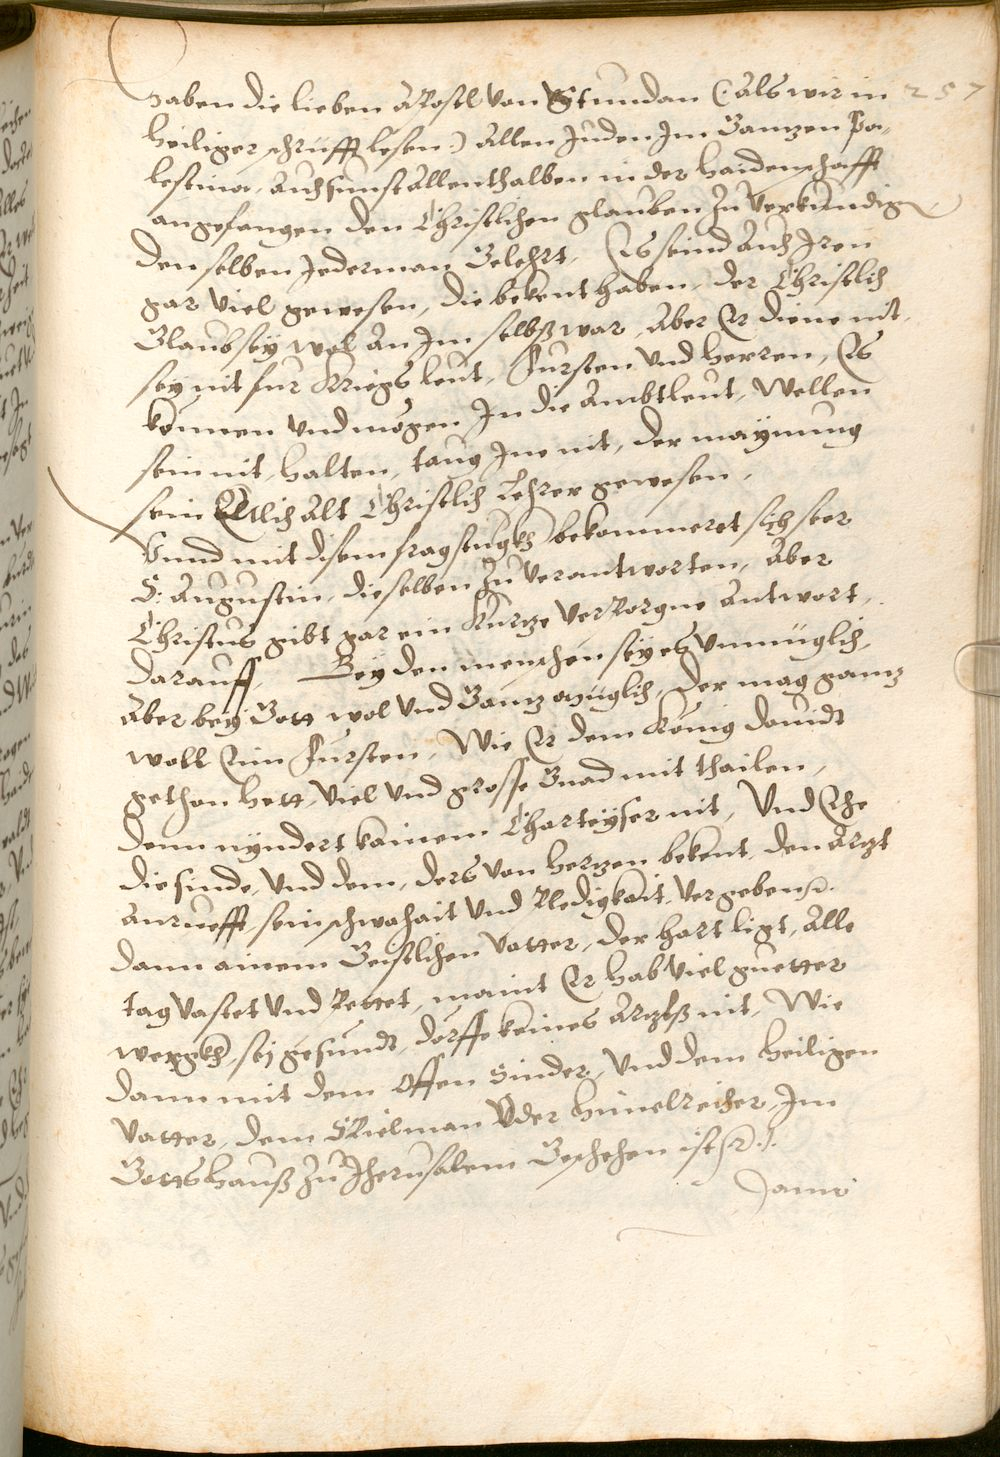 haben die lieben Apostl von Stundan (: als wir in 257
heiliger schrüfft lesen :) allen Juden Im Gantzen Pa-
lestina, auch sunst allenthalben in der haidenschafft
angefangen den Christlichen glauben zu verkundigen
denselben Jederman Gelehrt, Es seind auch Iren
gar viel gewesen, die bekent haben, der Christlich
Glaub sey wol an Im selbß war, aber Er diene nit,
sey nit fur Kriegsleut, Fursten und herren, Es
können und mögen In die Ambtleut, Wellen
sein nit halten, taug Ine nit, der maÿnung
sein Etlich alt Christlich Lehrer gewesen,
Unnd mit disem fragstugkh bekommeret sich seer
S: Augustin, dieselben zu verantworten, aber
Christus gibt gar ein Kurtze verporgne antwort,
darauff, Bey den menschen sey es unmüglich,
aber beÿ Gott wol und Gantz müglich, der mag gantz
woll Eim Fursten, Wie Er dem König dauidt
gethon hett, viel und grosse Gnad mit thailen,
denn nÿndert kainem Charteÿser nit, Und Ehe
die sinde, Und dem, ders von hertzen bekent, den Artzt
anruefft, sein schwahait und Pledigkait, vergeben etc.
dann ainem Geistlichen Vatter, der hart ligt, alle
tag vastet und Pettet, maint Er hab viel guetter
wergkh, sej gesundt, dörffe keines Artztß nit, Wie
dann mit dem Offen Sinder, Und dem heiligen
Vatter, dem Spielman Und der himelreicher, Im
Gottshauß zu Jherusalem Geschehen ist etc.